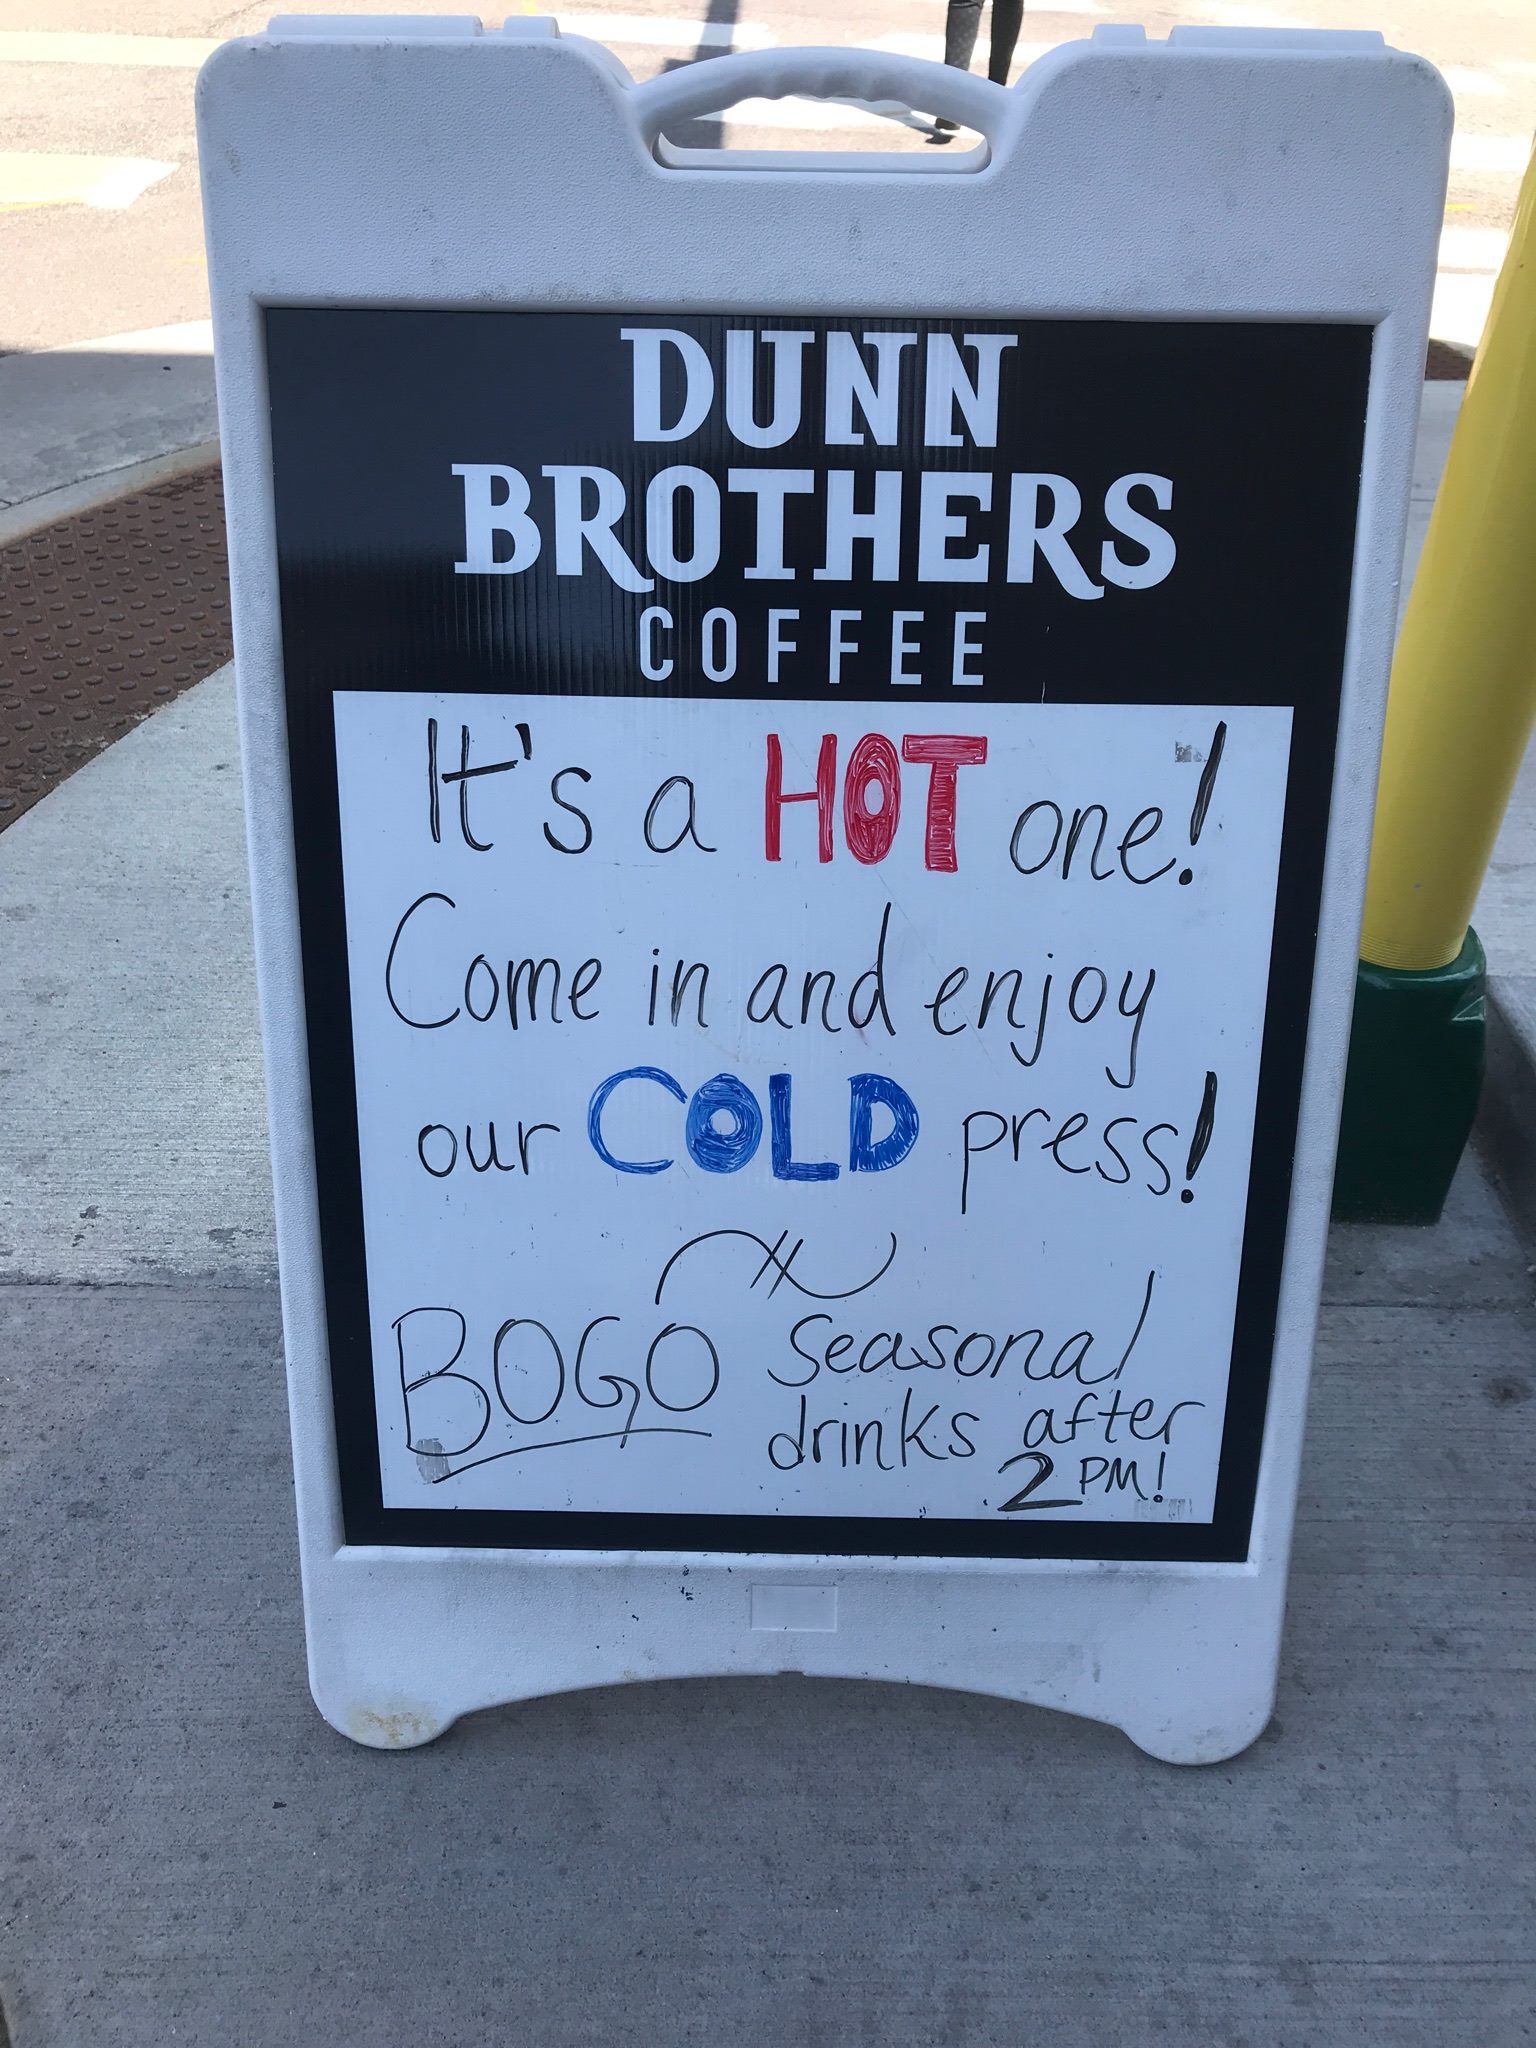 DUNN
BROTHERS
COFFEE
It's a HOT one!
Come in and enjoy
our COLD press!
BOGO Seasonal
drinks after
2 PM!